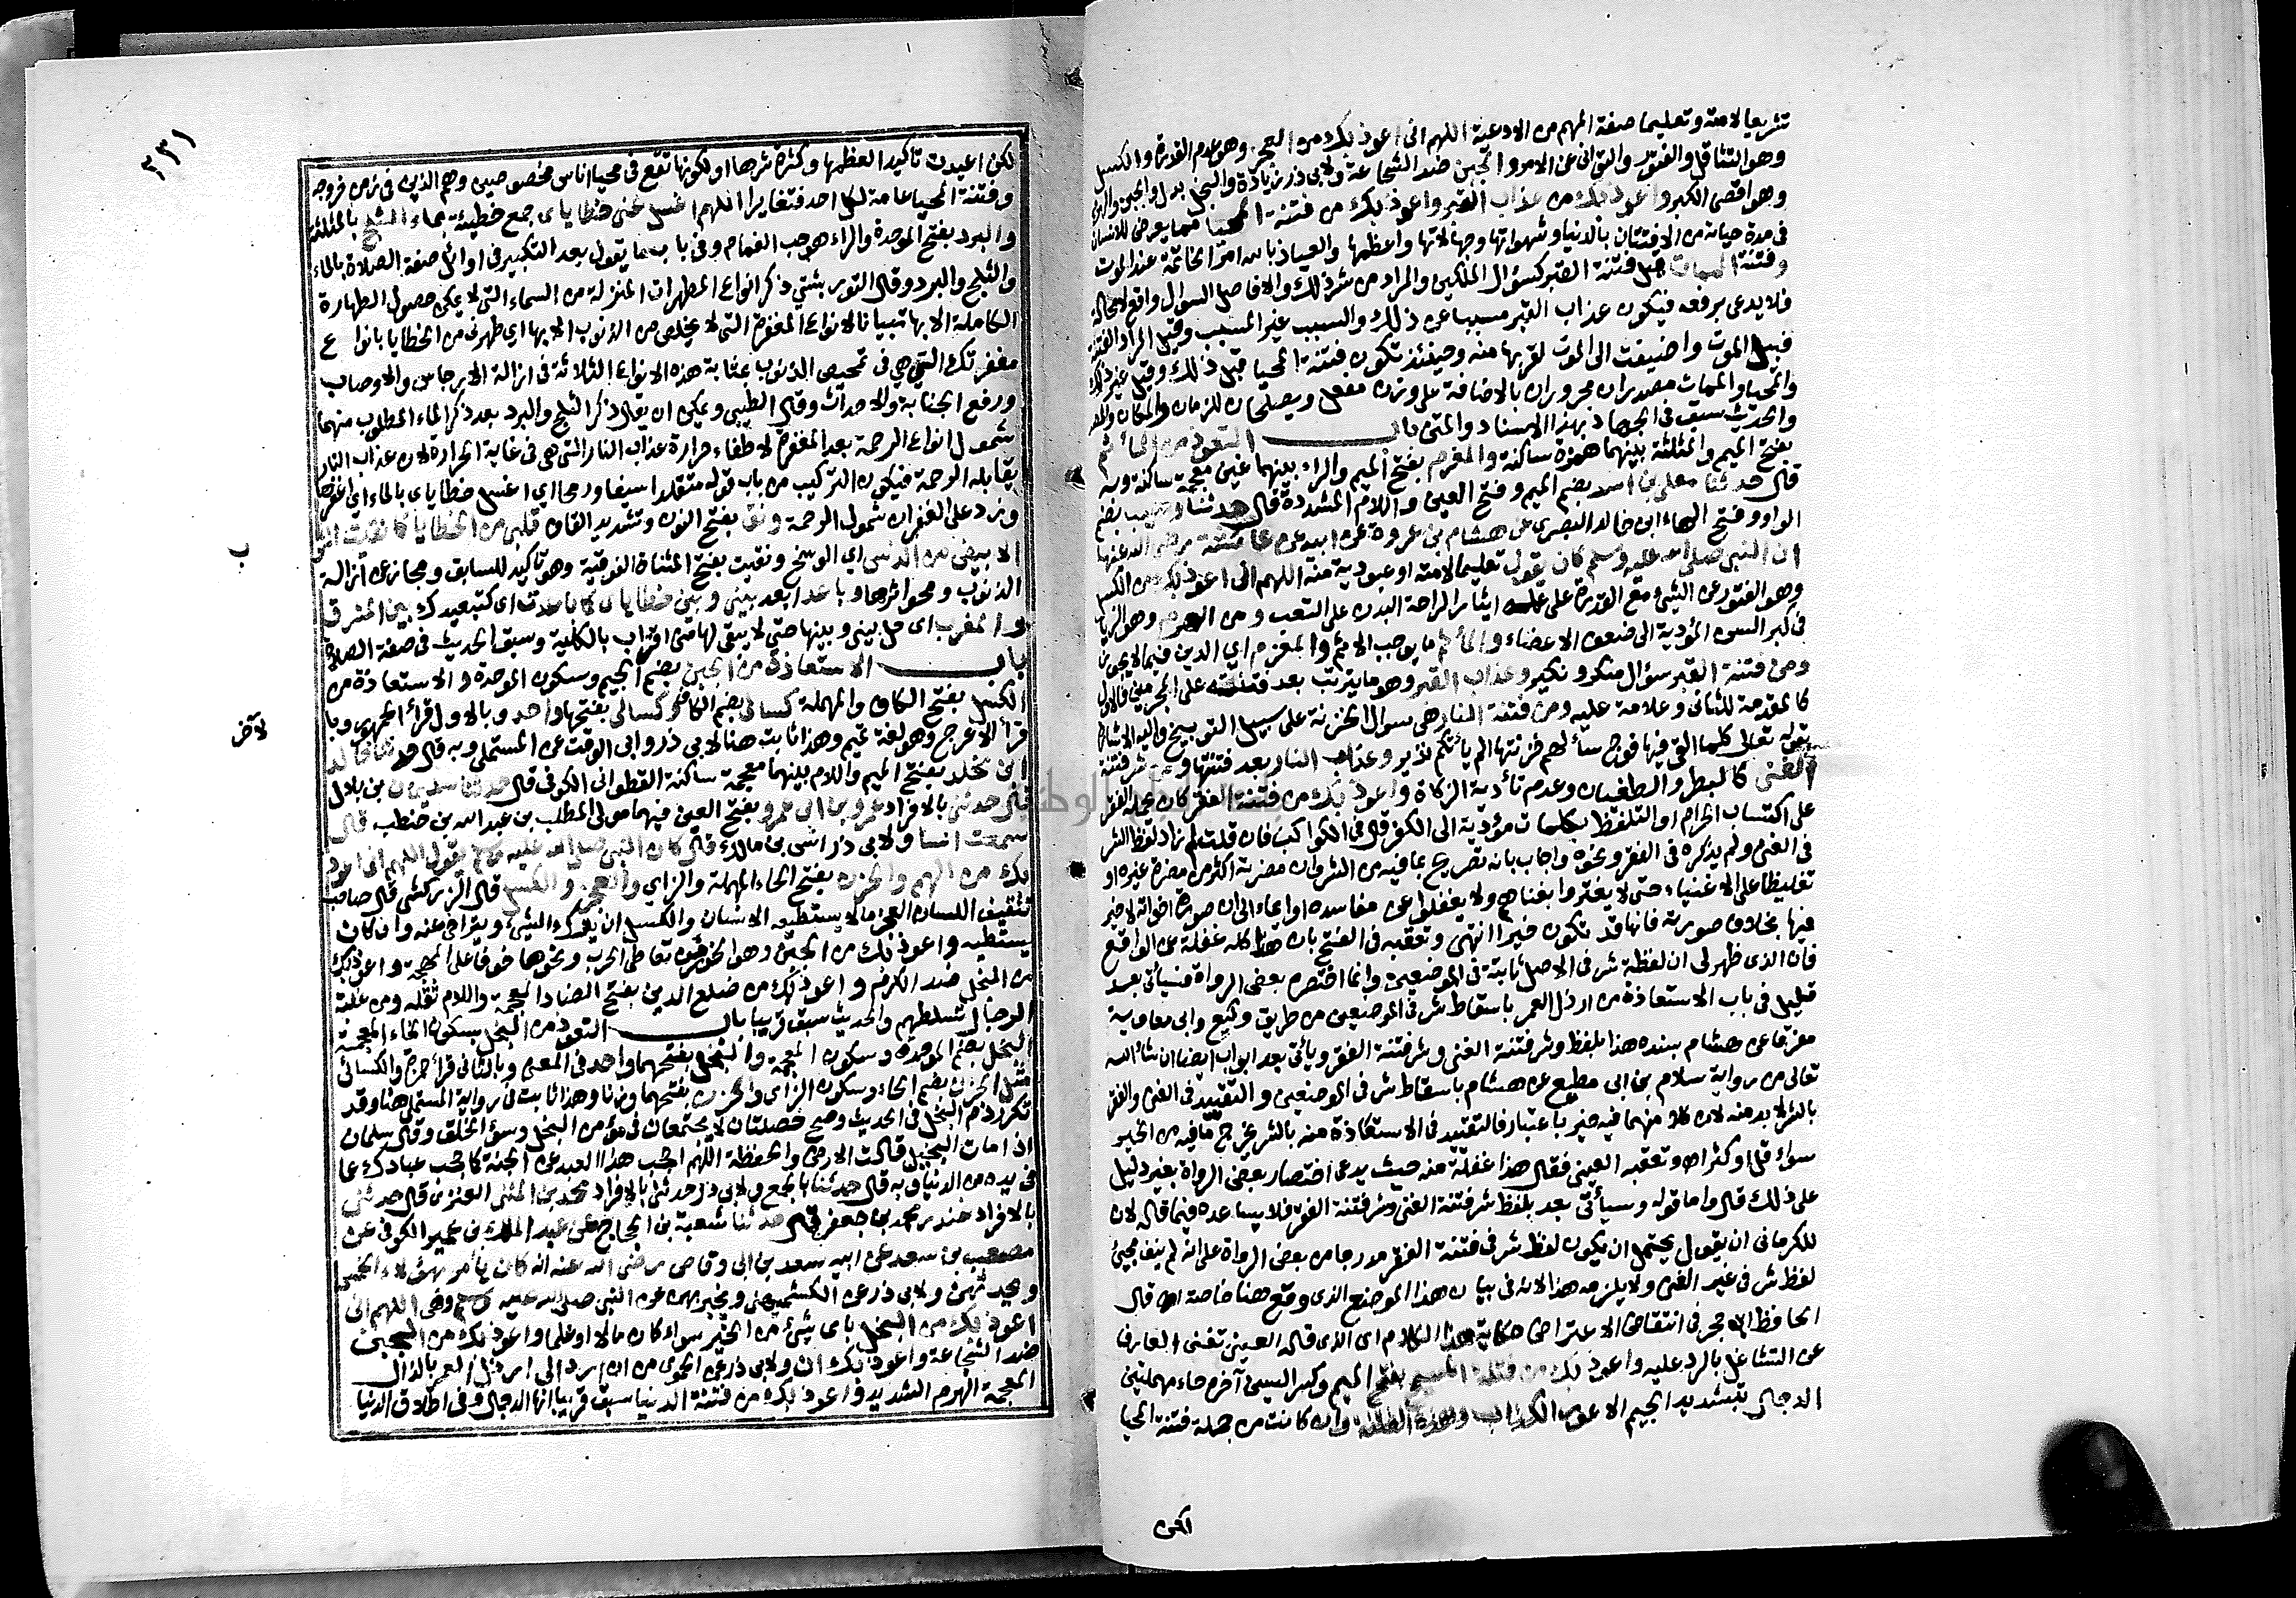 تشريعا لامته وتعليما صفة المهم من الادعية اللهم انى اعوذ بك من العجز وهو عدم القدرة والكسل
وهو التثاقل والفتور والتوانى عن الامر والجبن ضد الشجاعة ولابى ذر زيادة والبخل بدل والجبن والهرم
وهو اقصى الكبر واعوذ بك من عذاب القبر واعوذ بك من فتنة المحيا مما يعرض للانسان
فى مدة حياته من الافتتان بالدنيا وشهواتها وجهالاتها واعظمها والعياذ بالله امر الخاتمة عند الموت
وفتنة الممات قيل فتنة القبر كسؤال الملكين والمراد من شر ذلك والا فاصل السؤال واقع لا محالة
فلا يدعى برفعه فيكون عذاب القبر مسببا عن ذلك والسبب غير المسبب وقيل المراد الفتنة
قبيل الموت واضيفت الى الموت لقربها منه وحينئذ تكون فتنة المحيا قبل ذلك وقيل غير ذلك
والمحيا والممات مصدران مجروران بالاضافة على وزن مفعل ويصلحان للزمان والمكان والمصدر
والحديث سبق فى الجهاد بهذا الاسناد والمتن باب التعوذ من المأثم
بفتح الميم والمثلثة بينهما همزة ساكنة والمغرم بفتح الميم والراء بينهما غين معجمة ساكنة وبه
قال حدثنا معلى بن اسد بضم الميم وفتح العين واللام المشددة قال حدثنا وهيب بضم
الواو وفتح الهاء ابن خالد البصرى عن هشام بن عروة عن ابيه عن عائشة رضى الله عنها
ان النبى صلى الله عليه وسلم كان يقول تعليما لامته او عبودية منه اللهم انى اعوذ بك من الكسل
وهو الفتور عن الشئ مع القدرة على عمله ايثارا لراحة البدن على التعب ومن الهرم وهو الزيادة
فى كبر السن المؤدية الى ضعف الاعضاء والمأثم ما يوجب الاثم والمغرم اى الدين فيما لا يجوز
ومن فتنة القبر سؤال منكر ونكير وعذاب القبر وهو ما يترتب بعد فتنته على المجرمين فالاول
كالمقدمة للثانى وعلامة عليه ومن فتنة النار هى سوال الخزنة على سبيل التوبيخ واليه الاشارة
بقوله تعالى كلما القى فيها فوج سألهم خزنتها الم يأتكم نذير وعذاب النار بعد فتنتها ومن شر فتنة
الغنى كالبطر والطغيان وعدم تأدية الزكاة واعوذ بك من فتنة الفقر كان يحمله الفقر
على اكتساب الحرام او التلفظ بكلمات مؤدية الى الكفر قال فى الكواكب فان قلت لم زاد لفظ الشر
فى الغنى ولم يذكره فى الفقر ونحوه واجاب بانه تصريح بما فيه من الشر وان مضرته اكثر من مضرة غيره او
تغليظا على الاغنياء حتى لا يغتروا بغناهم ولا يغفلوا عن مفاسده او ايماء الى ان صورة اخواته لا خير
فيها بخلاف صورته فانها قد تكون خيرا انتهى وتعقبه فى الفتح بان هذا كله غفلة عن الواقع
فان الذى ظهر لى ان لفظة شر فى الاصل ثابتة فى الموضعين وانما اختصره بعض الرواة فسيأتى بعد
قليل فى باب الاستعاذة من ارذل العمر باسقاط شر فى الموضعين من طريق وكيع وابى معاوية
مفرقا عن هشام بسنده هذا بلفظ وشر فتنة الغنى وشر فتنة الفقر ويأتى بعد ابواب ايضا ان شاء الله
تعالى من رواية سلام بن ابى مطيع عن هشام باسقاط شر فى الموضعين والتقييد فى الغنى والفقر
بالشر لا بد منه لان كلا منهما فيه خير باعتبار فالتقييد فى الاستعاذة منه بالشر يخرج ما فيه من الخير
سواء قل او كثر اه وتعقبه العينى فقال هذا غفلة منه حيث يدعى اختصار بعض الرواة بغير دليل
على ذلك قال واما قوله وسيأتى بعد بلفظ شر فتنة الغنى وشر فتنة الفقر فلا يساعده فيما قاله لان
للكرمانى ان يقول يحتمل ان يكون لفظ شر فى فتنة الفقر مدرجا من بعض الرواة على انه لم ينف مجيئ
لفظ شر فى غير الغنى ولا يلزمه هذا لانه فى بيان هذا الموضع الذى وقع هنا خاصة اه قال
الحافظ ابن حجر فى انتقاض الاعتراض حكاية هذا الكلام اى الذى قاله العينى تغنى العارف
عن التشاغل بالرد عليه واعوذ بك من فتنة المسيح بفتح الميم وكسر السين آخره حاء مهملتين
الدجال بتشديد الجيم الاعور الكذاب وهذه الفتنة وان كانت من جملة فتنة المحيا
لكن
٢٣١
لكن اعيدت تاكيدا لعظمها وكثرة شرها او لكونها تقع فى محيا اناس مخصوصين وهم الذين فى زمن خروجه
وفتنة المحيا عامة لكل احد فتغايرا اللهم اغسل عنى خطاياى جمع خطيئة بماء الثلج بالمثلثة
والبرد بفتح الموحدة والراء هو حب الغمام وفى باب ما يقول بعد التكبير فى اوائل صفة الصلاة بالماء
والثلج والبرد وقال التوربشتى ذكر انواع المطهرات المنزلة من السماء التى لا يمكن حصول الطهارة
الكاملة الا بها تبيانا لانواع المغفرة التى لا يخلص من الذنوب الا بها اى طهرنى من الخطايا بانواع
مغفرتك التى هى فى تمحيص الذنوب بمثابة هذه الانواع الثلاثة فى ازالة الارجاس والاوصاب
ورفع الجنابة والاحداث وقال الطيبى ويمكن ان يقال ذكر الثلج والبرد بعد ذكر الماء المطلوب منهما
شمول انواع الرحمة بعد المغفرة لاطفاء حرارة عذاب النار التى هى فى غاية الحرارة لان عذاب النار
يقابله الرحمة فيكون التركيب من باب قوله متقلدا سيفا ورمحا اى اغسل خطاياى بالماء اى اغفرها
وزد على الغفران شمول الرحمة ونق بفتح النون وتشديد القاف قلبى من الخطايا كما نقيت الثوب
الابيض من الدنس اى الوسخ ونقيت بفتح المثناة الفوقية وهو تاكيد للسابق ومجاز عن ازالة
الذنوب ومحو اثرها وباعد ابعد بينى وبين خطاياى كما باعدت اى كتبعيدك بين المشرق
والمغرب اى حل بينى وبينها حتى لا يبقى لها منى اقتراب بالكلية وسبق الحديث فى صفة الصلاة
باب الاستعاذة من الجبن بضم الجيم وسكون الموحدة والاستعاذة من
الكسل بفتح الكاف والمهملة كسالى بضم الكاف وكسالى بفتحها واحد وبالاول قرأ الجمهور وبا
لآخر
قرأ الاعرج وهو لغة تميم وهذا ثابت هنا لابى ذر وابى الوقت عن المستملى وبه قال حدثنا خالد
ب
ابن مخلد بفتح الميم واللام بينهما معجمة ساكنة القطوانى الكوفى قال حدثنا سليمان بن بلال
قال حدثنى بالافراد عمرو بن ابى عمرو بفتح العين فيهما مولى المطلب بن عبد الله بن حنطب قال
سمعت انسا ولابى ذر انس بن مالك قال كان النبى صلى الله عليه وسلم يقول اللهم انى اعوذ
بك من الهم والحزن بفتح الحاء المهملة والزاى والعجز والكسل قال الزركشى قال صاحب
تثقيف اللسان العجز ما لا يستطيعه الانسان والكسل ان يترك الشئ ويتراخى عنه وان كان
يستطيعه واعوذ بك من الجبن وهو الخوف من تعاطى الحرب ونحوها خوفا على المهجة واعوذ بك
من البخل ضد الكرم واعوذ بك من ضلع الدين بفتح الضاد المعجمة واللام ثقله ومن غلبة
الرجال تسلطهم والحديث سبق قريبا باب التعوذ من البخل بسكون الخاء المعجمة
البخل بضم الموحدة وسكون المعجمة والبخل بفتحهما واحد فى المعنى وبالثانى قرأ حمزة والكسائى
مثل الحزن بضم الحاء وسكون الزاى والحزن بفتحهما وزنا وهذا ثابت فى رواية المستملى هنا وقد
تكرر ذم البخل فى الحديث وصح خصلتان لا يجتمعان فى مؤمن البخل وسوء الخلق وقال سلمان
اذا مات البخيل قالت الارض والحفظة اللهم احجب هذا العبد عن الجنة كما حجب عبادك عما
فى يده من الدنيا وبه قال حدثنا بالجمع ولابى ذر حدثنى بالافراد محمد بن المثنى العنزى قال حدثنى
بالافراد غندر محمد بن جعفر قال حدثنا شعبة بن الحجاج عن عبد الملك بن عمير الكوفى عن
مصعب بن سعد عن ابيه سعد بن ابى وقاص رضى الله عنه انه كان يأمر بهؤلاء الخمس
ويحدثهن ولابى ذر عن الكشميهنى ويخبر بهن عن النبى صلى الله عليه وسلم وهى اللهم انى
اعوذ بك من البخل باى شئ من الخير سواء كان مالا او علما واعوذ بك من الجبن
ضد الشجاعة واعوذ بك ان ولابى ذر عن الحموى من ان ارد الى ارذل العمر بالذال
المعجمة الهرم الشديد واعوذ بك من فتنة الدنيا سبق قريبا انها الدجال وفى اطلاق الدنيا